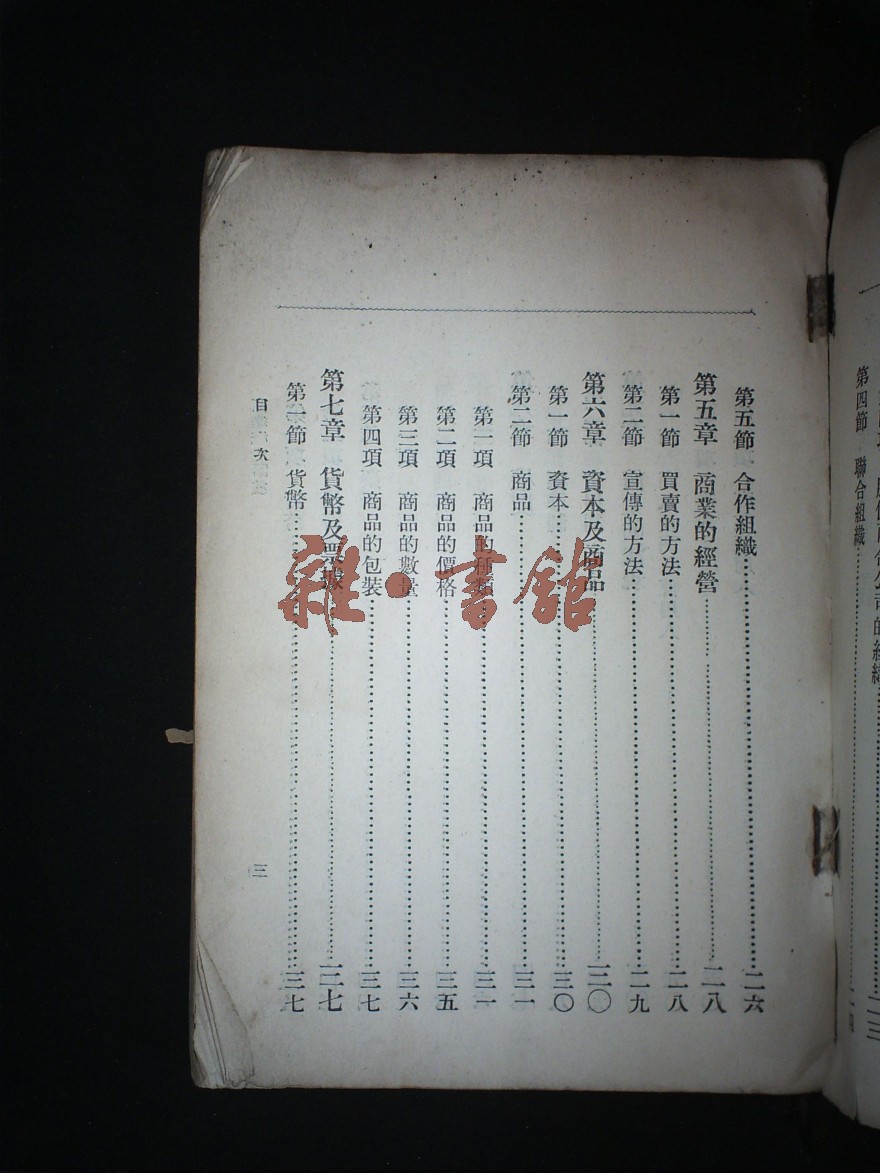 第四節　聯合組織
第五節　合作組織……二六
第五章　商業的經營……二八
第一節　買賣的方法……二八
第二節　宣傳的方法……二九
第六章　資本及商品……三〇
第一節　資本……三〇
第二節　商品……三一
第一項　商品的種類……三一
第二項　商品的價格……三五
第三項　商品的數量……三六
第四項　商品的包裝……三七
第七章　貨幣及票據……三七
第一節　貨幣……三七
目次
三
雜·書館